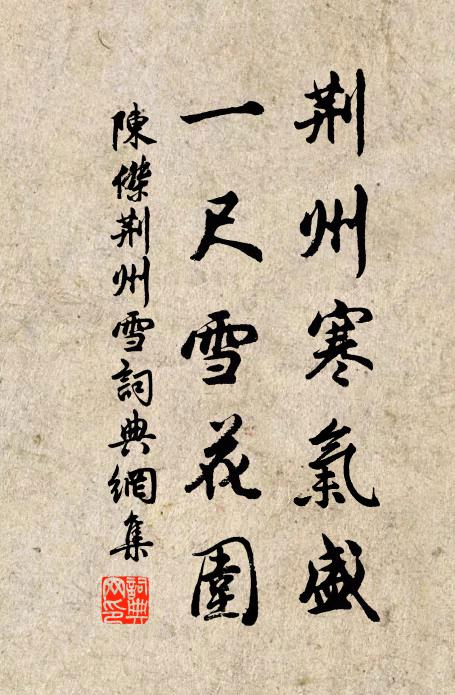 荆州寒氣盛
一尺雪花圍
陳傑荆州雪詞典網集
詞典网印